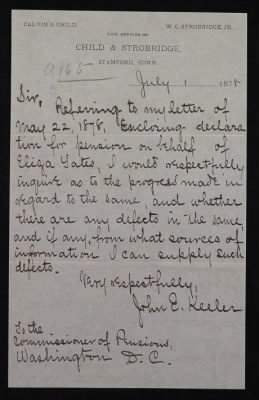 CALVIN G. CHILD. W. C. STROBRIDGE, JR.
LAW OFFICES OF
CHILD & STROBRIDGE,
STAMFORD, CONN.
July 1 1878
Sir, Referring to my letter of
May 22, 1878, Enclosing declara
tion for pension on behalf of
Eliza Gates, I would respectfully
inquire as to the progress made in
regard to the same, and whether
there are any defects in the same
and if any, from what sources of
information I can supply such
defects.
Very respectfully,
John E. Keeler
To the
Commissioner of Pensions,
Washington D. C.